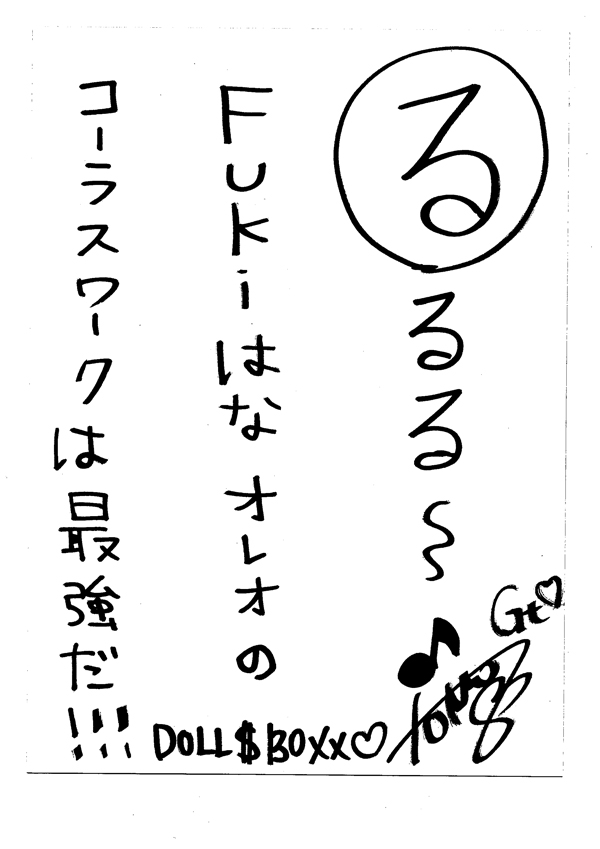 るるる〜♪
FUKiはな オレオの
コーラスワークは最強だ!!!
DOLL$BOXX♡
Gt♡